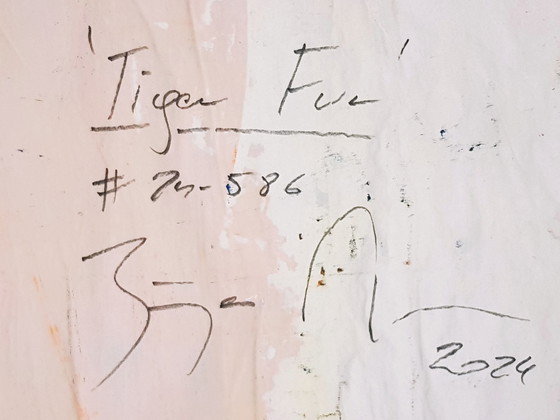 'Tiger Fur'
# 24-586
2024